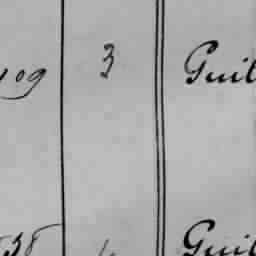 109 3 Guil
38 Guil